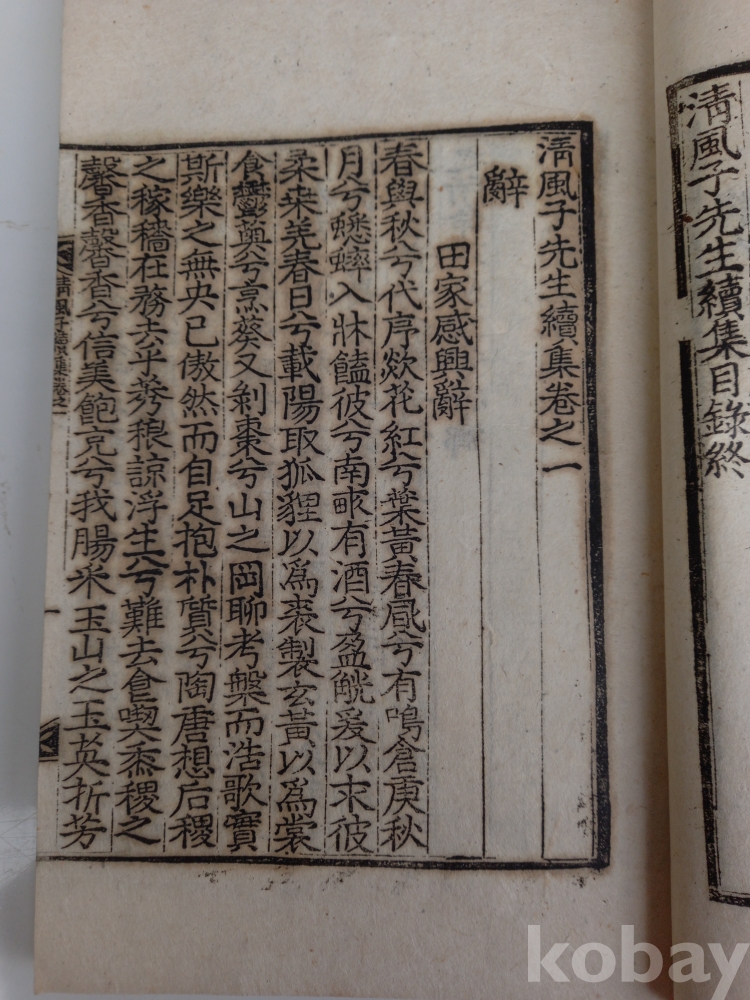 清風子先生續集目錄終
清風子先生續集卷之一
辭
田家感興辭
春與秋兮代序歘花紅兮葉黃春風兮有鳴倉庚秋
月兮蟋蟀入牀饁彼兮南畝有酒兮盈觥爰以求彼
柔桑羌春日兮載陽取狐貍以爲裘製玄黃以爲裳
食鬱薁兮烹葵又剝棗兮山之岡聊考槃而浩歌實
斯樂之無央已傲然而自足抱朴質兮陶唐想后稷
之稼穡在務去乎莠稂諒浮生兮難去食喫黍稷之
馨香馨香兮信美飽充兮我腸采玉山之玉英折芳
清風子先生續集卷之一
一
kobay